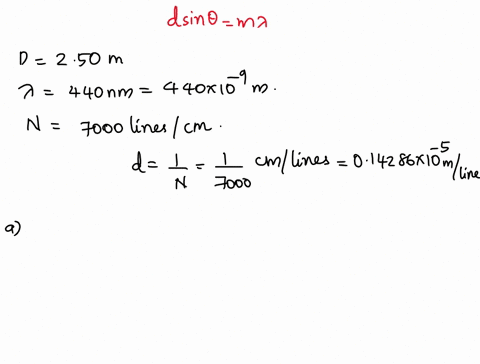 dsinθ=mλ
D = 2.50 m
λ = 440nm = 440×10⁻⁹ m.
N = 7000 lines/cm.
d = 1/N = 1/7000 cm/lines = 0.14286×10⁻⁵ m/line
a)